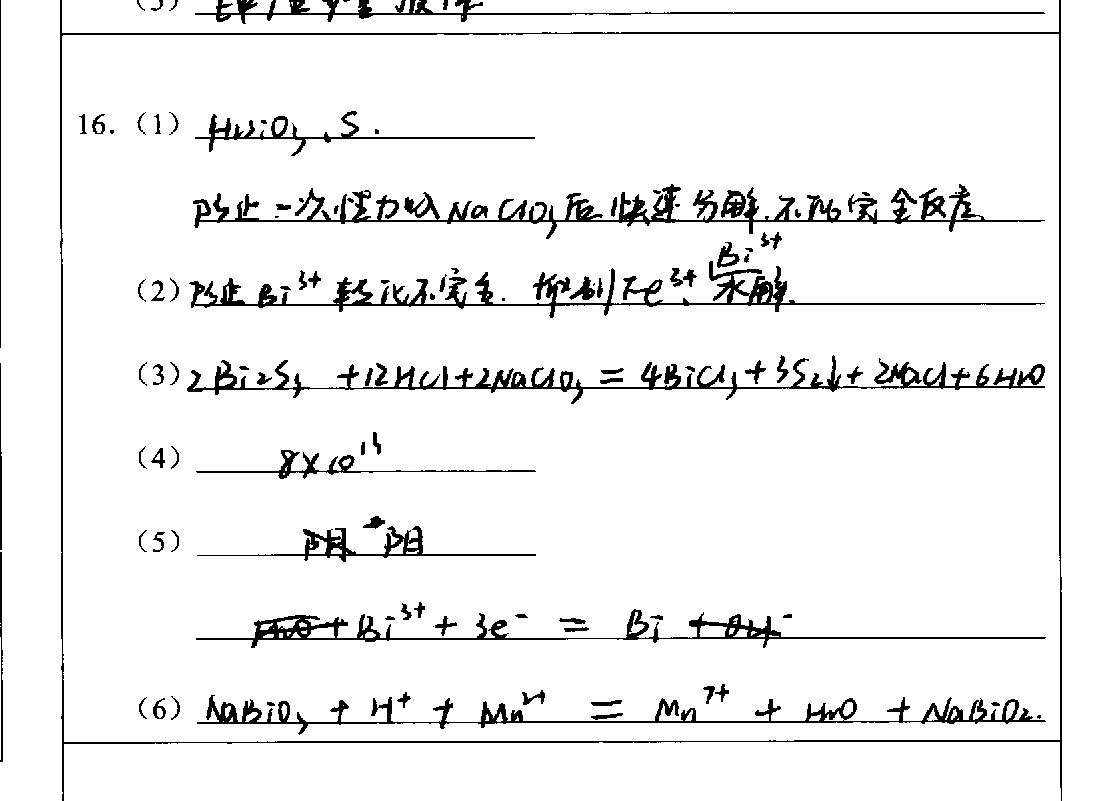 (5)
16.（1） H₂SiO₃、S.
防止一次性加入NaClO₃后快速分解.不能完全反应
（2）防止Bi³⁺转化不完全. 抑制Fe³⁺、Bi³⁺水解.
（3）2Bi₂S₃ +12HCl+2NaClO₃ = 4BiCl₃+3S₂↓+2NaCl+6H₂O
（4） 8×10¹³
（5） 阳
Bi³⁺ + 3e⁻ = Bi
（6） NaBiO₃ + H⁺ + Mn²⁺ = Mn⁷⁺ + H₂O + NaBiO₂.